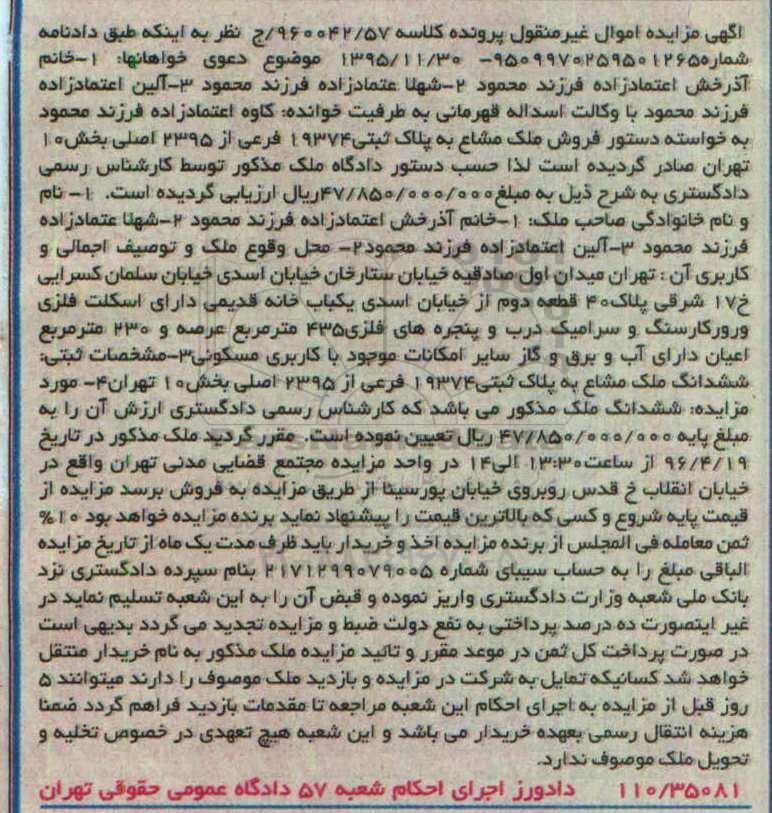 آگهی مزایده اموال غیرمنقول پرونده کلاسه ۹۶۰۰۴۲/۵۷/ج نظر به اینکه طبق دادنامه
شماره۹۵۰۹۹۷۰۲۵۹۵۰۱۲۶۵- ۱۳۹۵/۱۱/۳۰ موضوع دعوی خواهانها: ۱-خانم
آذرخش اعتمادزاده فرزند محمود ۲-شهلا عتمادزاده فرزند محمود ۳-آلین اعتمادزاده
فرزند محمود با وکالت اسداله قهرمانی به طرفیت خوانده: کاوه اعتمادزاده فرزند محمود
به خواسته دستور فروش ملک مشاع به پلاک ثبتی۱۹۳۷۴ فرعی از ۲۳۹۵ اصلی بخش۱۰
تهران صادر گردیده است لذا حسب دستور دادگاه ملک مذکور توسط کارشناس رسمی
دادگستری به شرح ذیل به مبلغ۴۷/۸۵۰/۰۰۰/۰۰۰ریال ارزیابی گردیده است. ۱- نام
و نام خانوادگی صاحب ملک: ۱-خانم آذرخش اعتمادزاده فرزند محمود ۲-شهلا عتمادزاده
فرزند محمود ۳-آلین اعتمادزاده فرزند محمود۲- محل وقوع ملک و توصیف اجمالی و
کاربری آن : تهران میدان اول صادقیه خیابان ستارخان خیابان اسدی خیابان سلمان کسرایی
خ۱۷ شرقی پلاک۴۰ قطعه دوم از خیابان اسدی یکباب خانه قدیمی دارای اسکلت فلزی
ورورکارسنگ و سرامیک درب و پنجره های فلزی۴۳۵ مترمربع عرصه و ۲۳۰ مترمربع
اعیان دارای آب و برق و گاز سایر امکانات موجود با کاربری مسکونی۳-مشخصات ثبتی:
ششدانگ ملک مشاع به پلاک ثبتی۱۹۳۷۴ فرعی از ۲۳۹۵ اصلی بخش۱۰ تهران۴- مورد
مزایده: ششدانگ ملک مذکور می باشد که کارشناس رسمی دادگستری ارزش آن را به
مبلغ پایه ۴۷/۸۵۰/۰۰۰/۰۰۰ ریال تعیین نموده است. مقرر گردید ملک مذکور در تاریخ
۹۶/۴/۱۹ از ساعت۱۳:۳۰ الی۱۴ در واحد مزایده مجتمع قضایی مدنی تهران واقع در
خیابان انقلاب خ قدس روبروی خیابان پورسینا از طریق مزایده به فروش برسد مزایده از
قیمت پایه شروع و کسی که بالاترین قیمت را پیشنهاد نماید برنده مزایده خواهد بود ۱۰%
ثمن معامله فی المجلس از برنده مزایده اخذ و خریدار باید ظرف مدت یک ماه از تاریخ مزایده
الباقی مبلغ را به حساب سیبای شماره ۲۱۷۱۲۹۹۰۷۹۰۰۵ بنام سپرده دادگستری نزد
بانک ملی شعبه وزارت دادگستری واریز نموده و قبض آن را به این شعبه تسلیم نماید در
غیر اینصورت ده درصد پرداختی به نفع دولت ضبط و مزایده تجدید می گردد بدیهی است
در صورت پرداخت کل ثمن در موعد مقرر و تائید مزایده ملک مذکور به نام خریدار منتقل
خواهد شد کسانیکه تمایل به شرکت در مزایده و بازدید ملک موصوف را دارند میتوانند ۵
روز قبل از مزایده به اجرای احکام این شعبه مراجعه تا مقدمات بازدید فراهم گردد ضمنا
هزینه انتقال رسمی بعهده خریدار می باشد و این شعبه هیچ تعهدی در خصوص تخلیه و
تحویل ملک موصوف ندارد.
۱۱۰/۳۵۰۸۱ دادورز اجرای احکام شعبه ۵۷ دادگاه عمومی حقوقی تهران